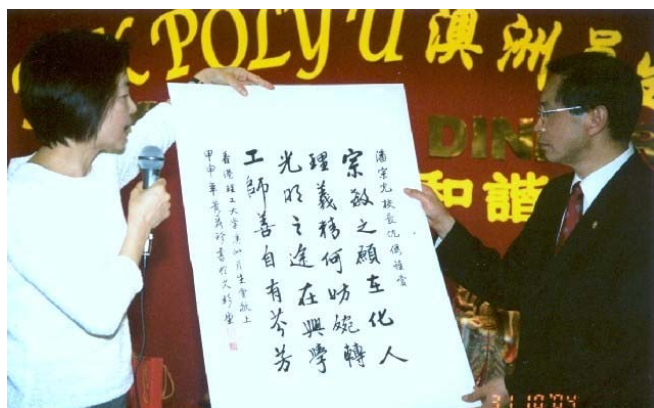 K POLY U 澳洲
DIN
和諧
潘宗光校長伉儷雅賞
宗教之願在化人
理義精何妨婉轉
光明之途在興學
工師善自有芬芳
香港理工大學澳洲 生會敬上
甲申年黃 珍書於文 堂
31 10 '04